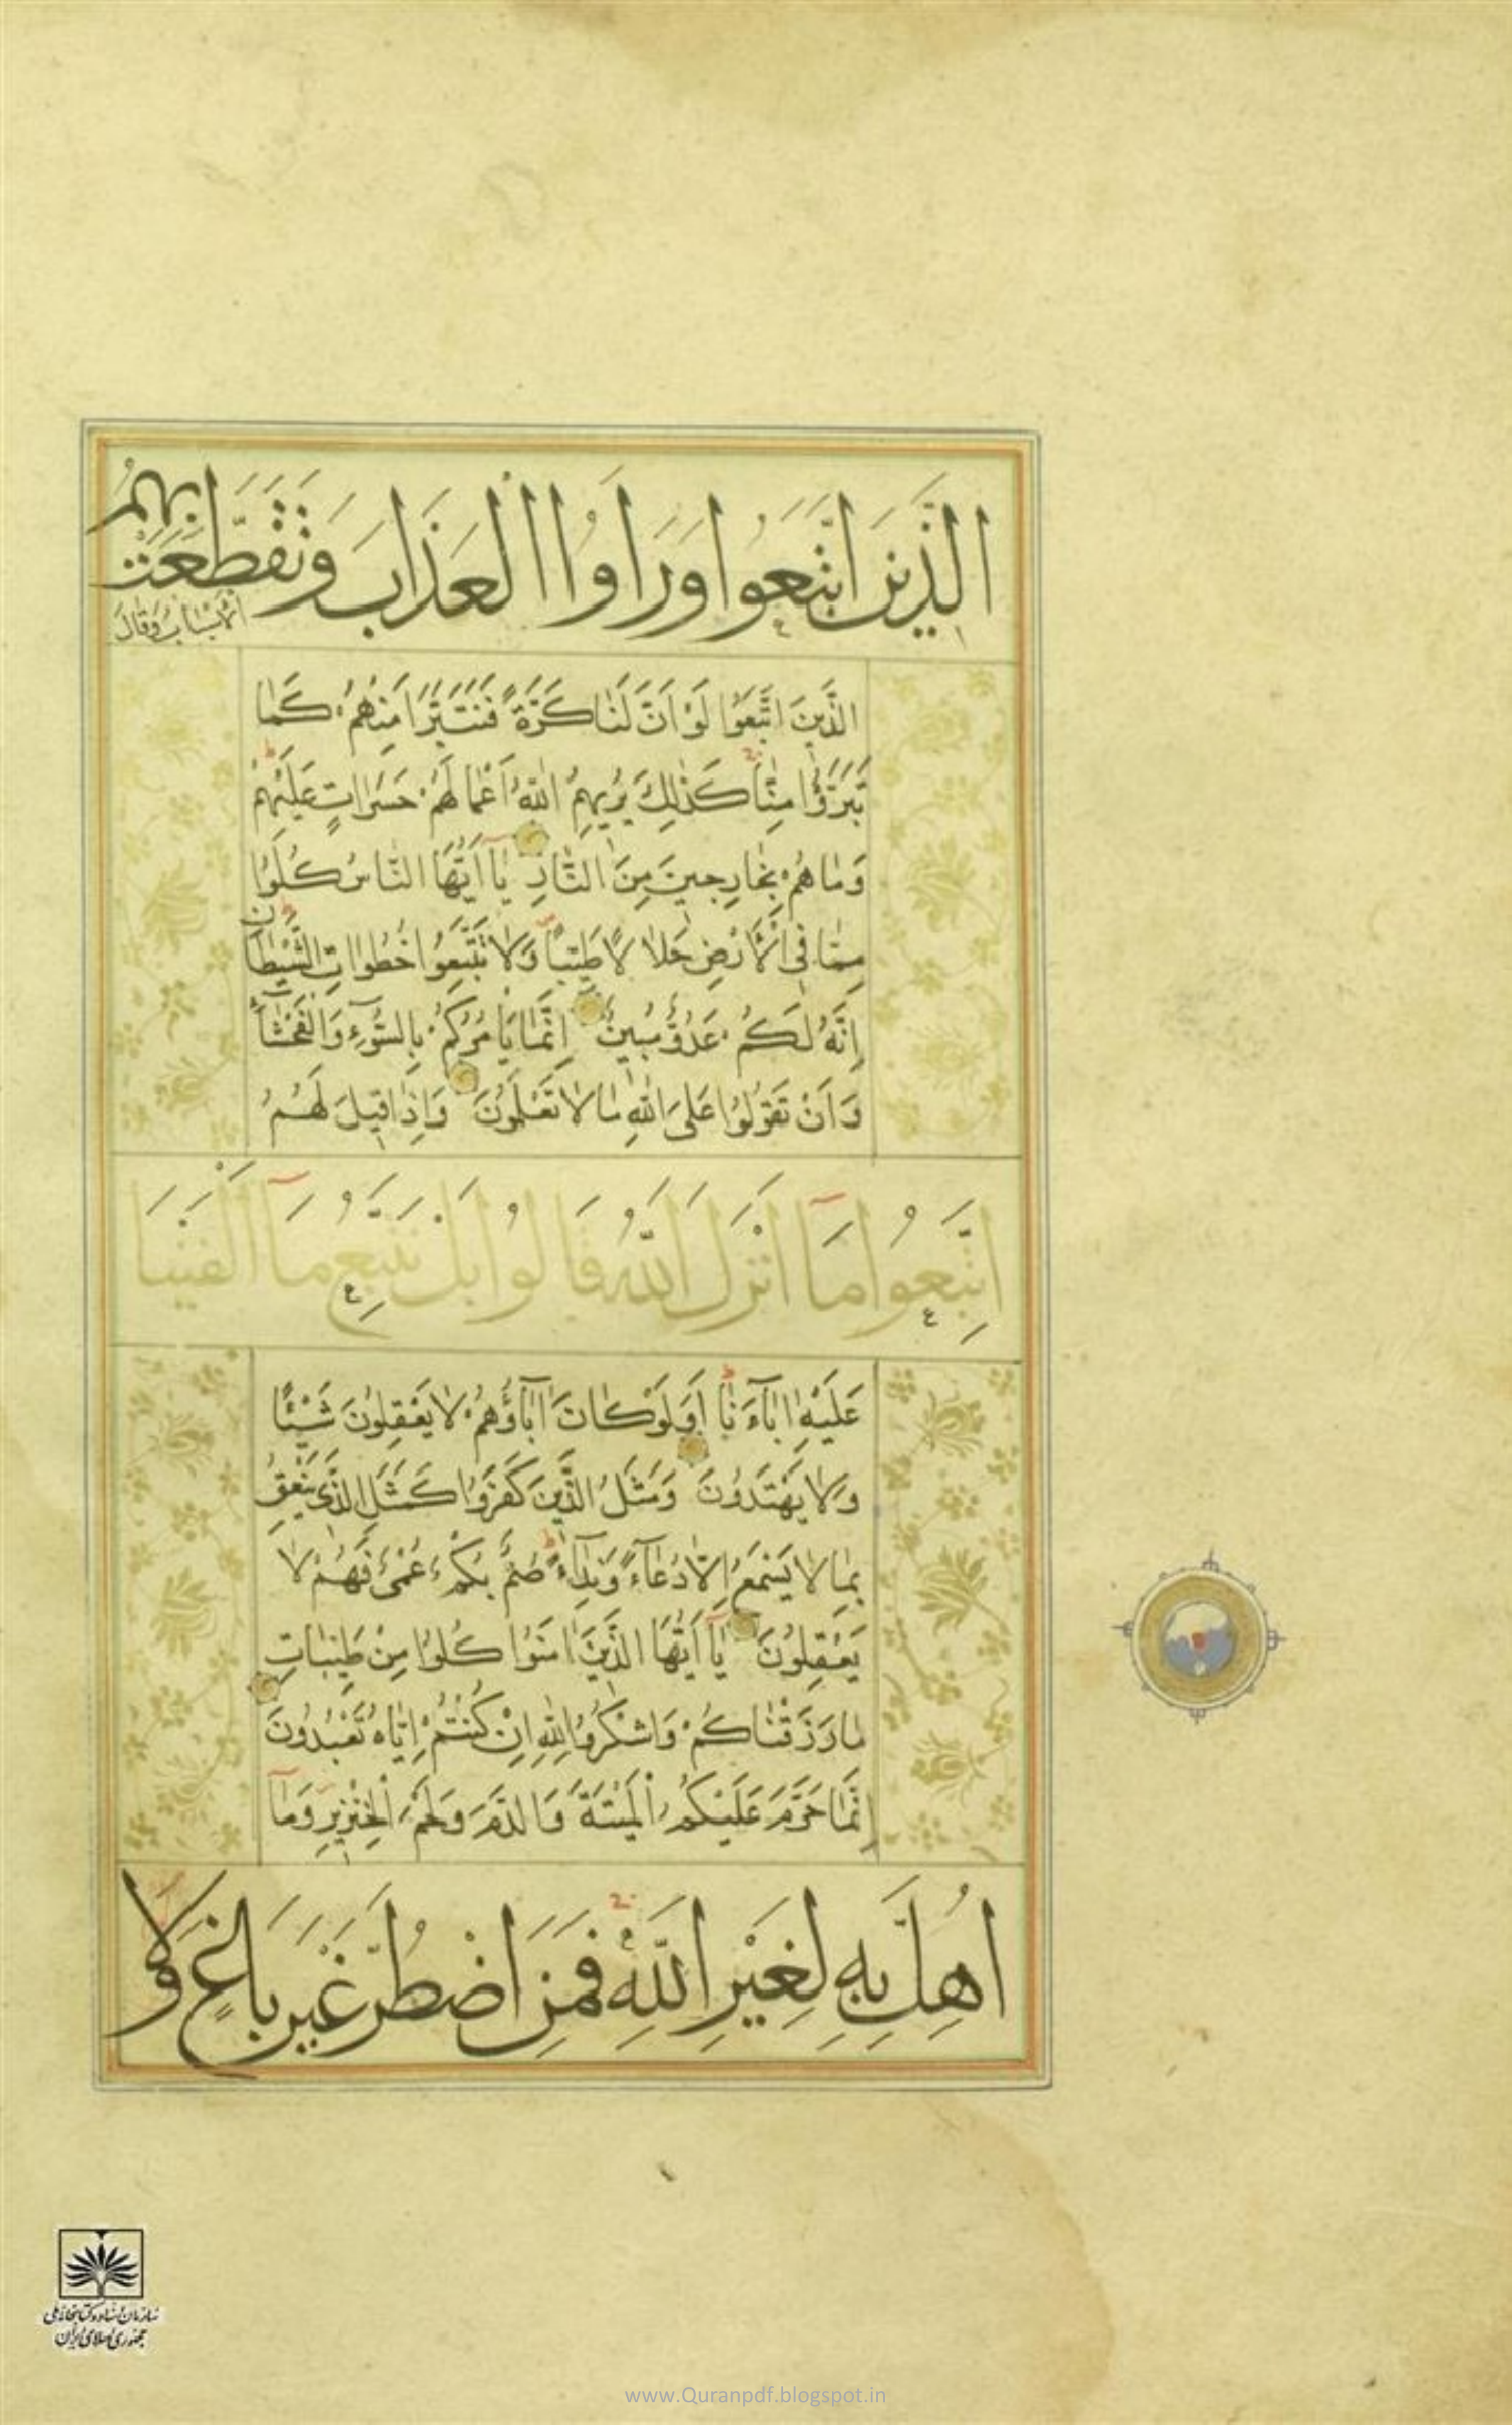 الَّذينَ اتَّبَعُوا وَرَاَوُا الْعَذَابَ وَتَقَطَّعَتْ بِهِمُ
الْاَسْبَابُ وَقَالَ
الَّذينَ اتَّبَعُوا لَوْ اَنَّ لَنَا كَرَّةً فَنَتَبَرَّاَ مِنْهُمْ كَمَا
تَبَرَّؤُا مِنَّا كَذٰلِكَ يُريهِمُ اللّٰهُ اَعْمَالَهُمْ حَسَرَاتٍ عَلَيْهِمْ
وَمَا هُمْ بِخَارِجينَ مِنَ النَّارِ يَآ اَيُّهَا النَّاسُ كُلُوا
مِمَّا فِي الْاَرْضِ حَلَالًا طَيِّبًا وَلَا تَتَّبِعُوا خُطُوَاتِ الشَّيْطَانِ
اِنَّهُ لَكُمْ عَدُوٌّ مُبينٌ اِنَّمَا يَاْمُرُكُمْ بِالسُّوٓءِ وَالْفَحْشَآءِ
وَاَنْ تَقُولُوا عَلَى اللّٰهِ مَا لَا تَعْلَمُونَ وَاِذَا قيلَ لَهُمُ
اتَّبِعُوا مَآ اَنْزَلَ اللّٰهُ قَالُوا بَلْ نَتَّبِعُ مَآ اَلْفَيْنَا
عَلَيْهِ اٰبَآءَنَا اَوَلَوْ كَانَ اٰبَآؤُهُمْ لَا يَعْقِلُونَ شَيْئًا
وَلَا يَهْتَدُونَ وَمَثَلُ الَّذينَ كَفَرُوا كَمَثَلِ الَّذي يَنْعِقُ
بِمَا لَا يَسْمَعُ اِلَّا دُعَآءً وَنِدَآءً صُمٌّ بُكْمٌ عُمْيٌ فَهُمْ لَا
يَعْقِلُونَ يَآ اَيُّهَا الَّذينَ اٰمَنُوا كُلُوا مِنْ طَيِّبَاتِ
مَا رَزَقْنَاكُمْ وَاشْكُرُوا لِلّٰهِ اِنْ كُنْتُمْ اِيَّاهُ تَعْبُدُونَ
اِنَّمَا حَرَّمَ عَلَيْكُمُ الْمَيْتَةَ وَالدَّمَ وَلَحْمَ الْخِنْزيرِ وَمَآ
اُهِلَّ بِهِ لِغَيْرِ اللّٰهِ فَمَنِ اضْطُرَّ غَيْرَ بَاغٍ وَلَا
سازمان اسناد و کتابخانه ملی
جمهوری اسلامی ایران
www.Quranpdf.blogspot.in